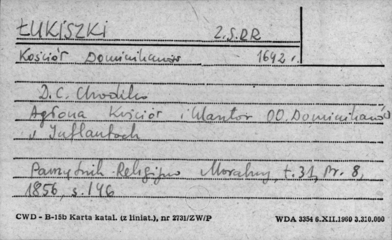 ŁUKISZKI Z.S.R.R
Kościół Dominikanów 1642 r.
D.C. Chodźko
Agłona Kościół i klasztor OO. Dominikanów
w Inflantach
Pamiętnik Religijno Moralny, t. 31, Nr. 8,
1856, s. 146
CWD - B-15b Karta katal. (z liniat.), nr 2731/ZW/P WDA 3354 6.XII.1960 3.210.000